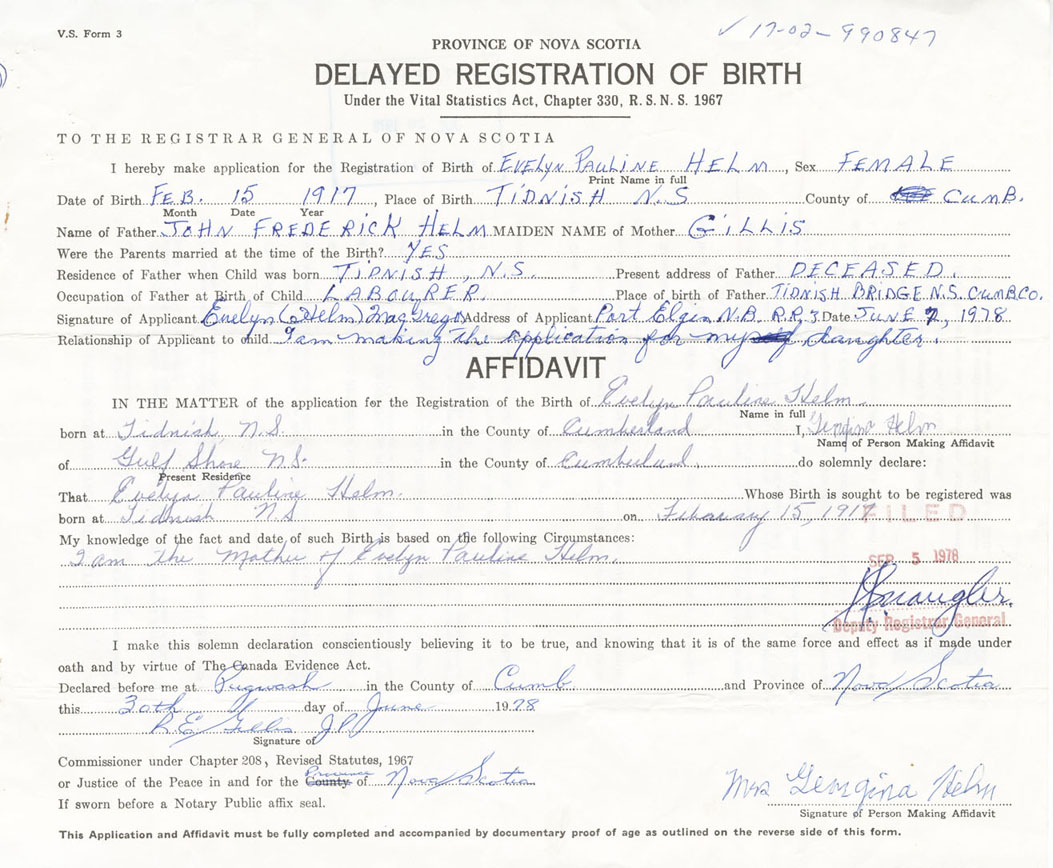 V.S. Form 3
✓ 17-02-990847
PROVINCE OF NOVA SCOTIA
DELAYED REGISTRATION OF BIRTH
Under the Vital Statistics Act, Chapter 330, R.S.N.S. 1967
TO THE REGISTRAR GENERAL OF NOVA SCOTIA
I hereby make application for the Registration of Birth of EVELYN PAULINE HELM, Sex FEMALE
Print Name in full
Date of Birth FEB. 15 1917, Place of Birth TIDNISH N.S County of CUMB.
Month Date Year
Name of Father JOHN FREDERICK HELM MAIDEN NAME of Mother GILLIS
Were the Parents married at the time of the Birth? YES
Residence of Father when Child was born TIDNISH, N.S. Present address of Father DECEASED.
Occupation of Father at Birth of Child LABOURER. Place of birth of Father TIDNISH BRIDGE N.S. CUMB CO.
Signature of Applicant Evelyn (Helm) MacGregor Address of Applicant Port Elgin N.B. R.R. 3 Date JUNE 7, 1978
Relationship of Applicant to child I am making the application for my daughter.
AFFIDAVIT
IN THE MATTER of the application for the Registration of the Birth of Evelyn Pauline Helm.
Name in full
born at Tidnish, N.S. in the County of Cumberland I, Georgina Helm
Name of Person Making Affidavit
of Gulf Shore N.S. in the County of Cumberland. do solemnly declare:
Present Residence
That Evelyn Pauline Helm. Whose Birth is sought to be registered was
born at Tidnish N.S on February 15, 1917
FILED
My knowledge of the fact and date of such Birth is based on the following Circumstances:
I am the Mother of Evelyn Pauline Helm.
SEP. 5 1978
Deputy Registrar General
I make this solemn declaration conscientiously believing it to be true, and knowing that it is of the same force and effect as if made under
oath and by virtue of The Canada Evidence Act.
Declared before me at Pugwash in the County of Cumb and Province of Nova Scotia
this 30th day of June 1978
R E Gillis J.P.
Signature of
Commissioner under Chapter 208, Revised Statutes, 1967
Province
or Justice of the Peace in and for the County of Nova Scotia
If sworn before a Notary Public affix seal.
Mrs Georgina Helm
Signature of Person Making Affidavit
This Application and Affidavit must be fully completed and accompanied by documentary proof of age as outlined on the reverse side of this form.